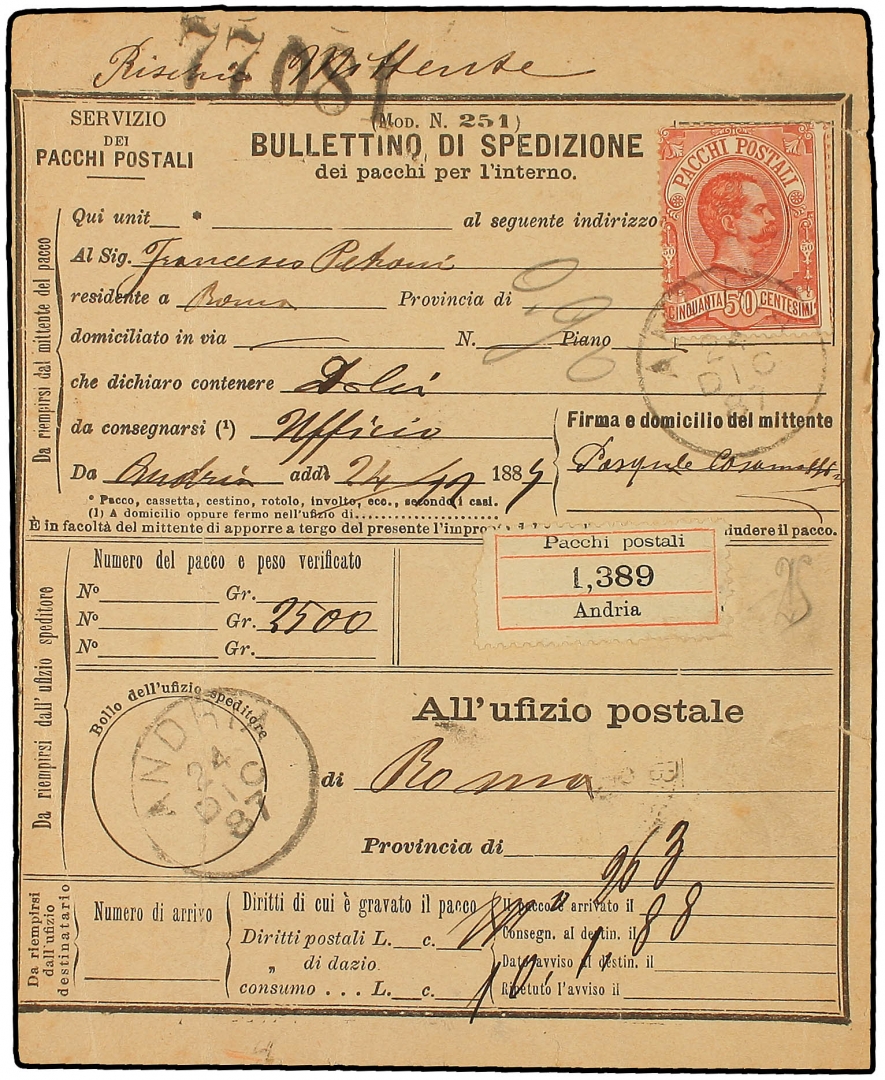 7708
Rischio Mittente
SERVIZIO
DEI
PACCHI POSTALI
(MOD. N. 251)
BULLETTINO DI SPEDIZIONE
dei pacchi per l'interno.
PACCHI POSTALI
50 50
CINQUANTA 50 CENTESIMI
Da riempirsi dal mittente del pacco
Qui unit * al seguente indirizzo
Al Sig. Francesco Petroni
residente a Roma Provincia di
domiciliato in via N. Piano
che dichiaro contenere Dolci
da consegnarsi (¹) Ufficio
Da Andria addì 24/12 1887
Firma e domicilio del mittente
Pasquale
ANDRIA
24
DIC
87
* Pacco, cassetta, cestino, rotolo, involto, ecc., secondo i casi.
(1) A domicilio oppure fermo nell'ufizio di
È in facoltà del mittente di apporre a tergo del presente l'impronta chiudere il pacco.
Da riempirsi dall'ufizio speditore
Numero del pacco e peso verificato
Nº Gr.
Nº Gr. 2500
Nº Gr.
Pacchi postali
1,389
Andria
25
Bollo dell'ufizio speditore
ANDRIA
24
DIC
87
All'ufizio postale
di Roma
Provincia di
Da riempirsi
dall'ufizio
destinatario
Numero di arrivo
Diritti di cui è gravato il pacco
Diritti postali L. c.
„ di dazio
consumo . . . L. c.
Il pacco è arrivato il
Consegn. al destin. il
Dato avviso al destin. il
Ripetuto l'avviso il